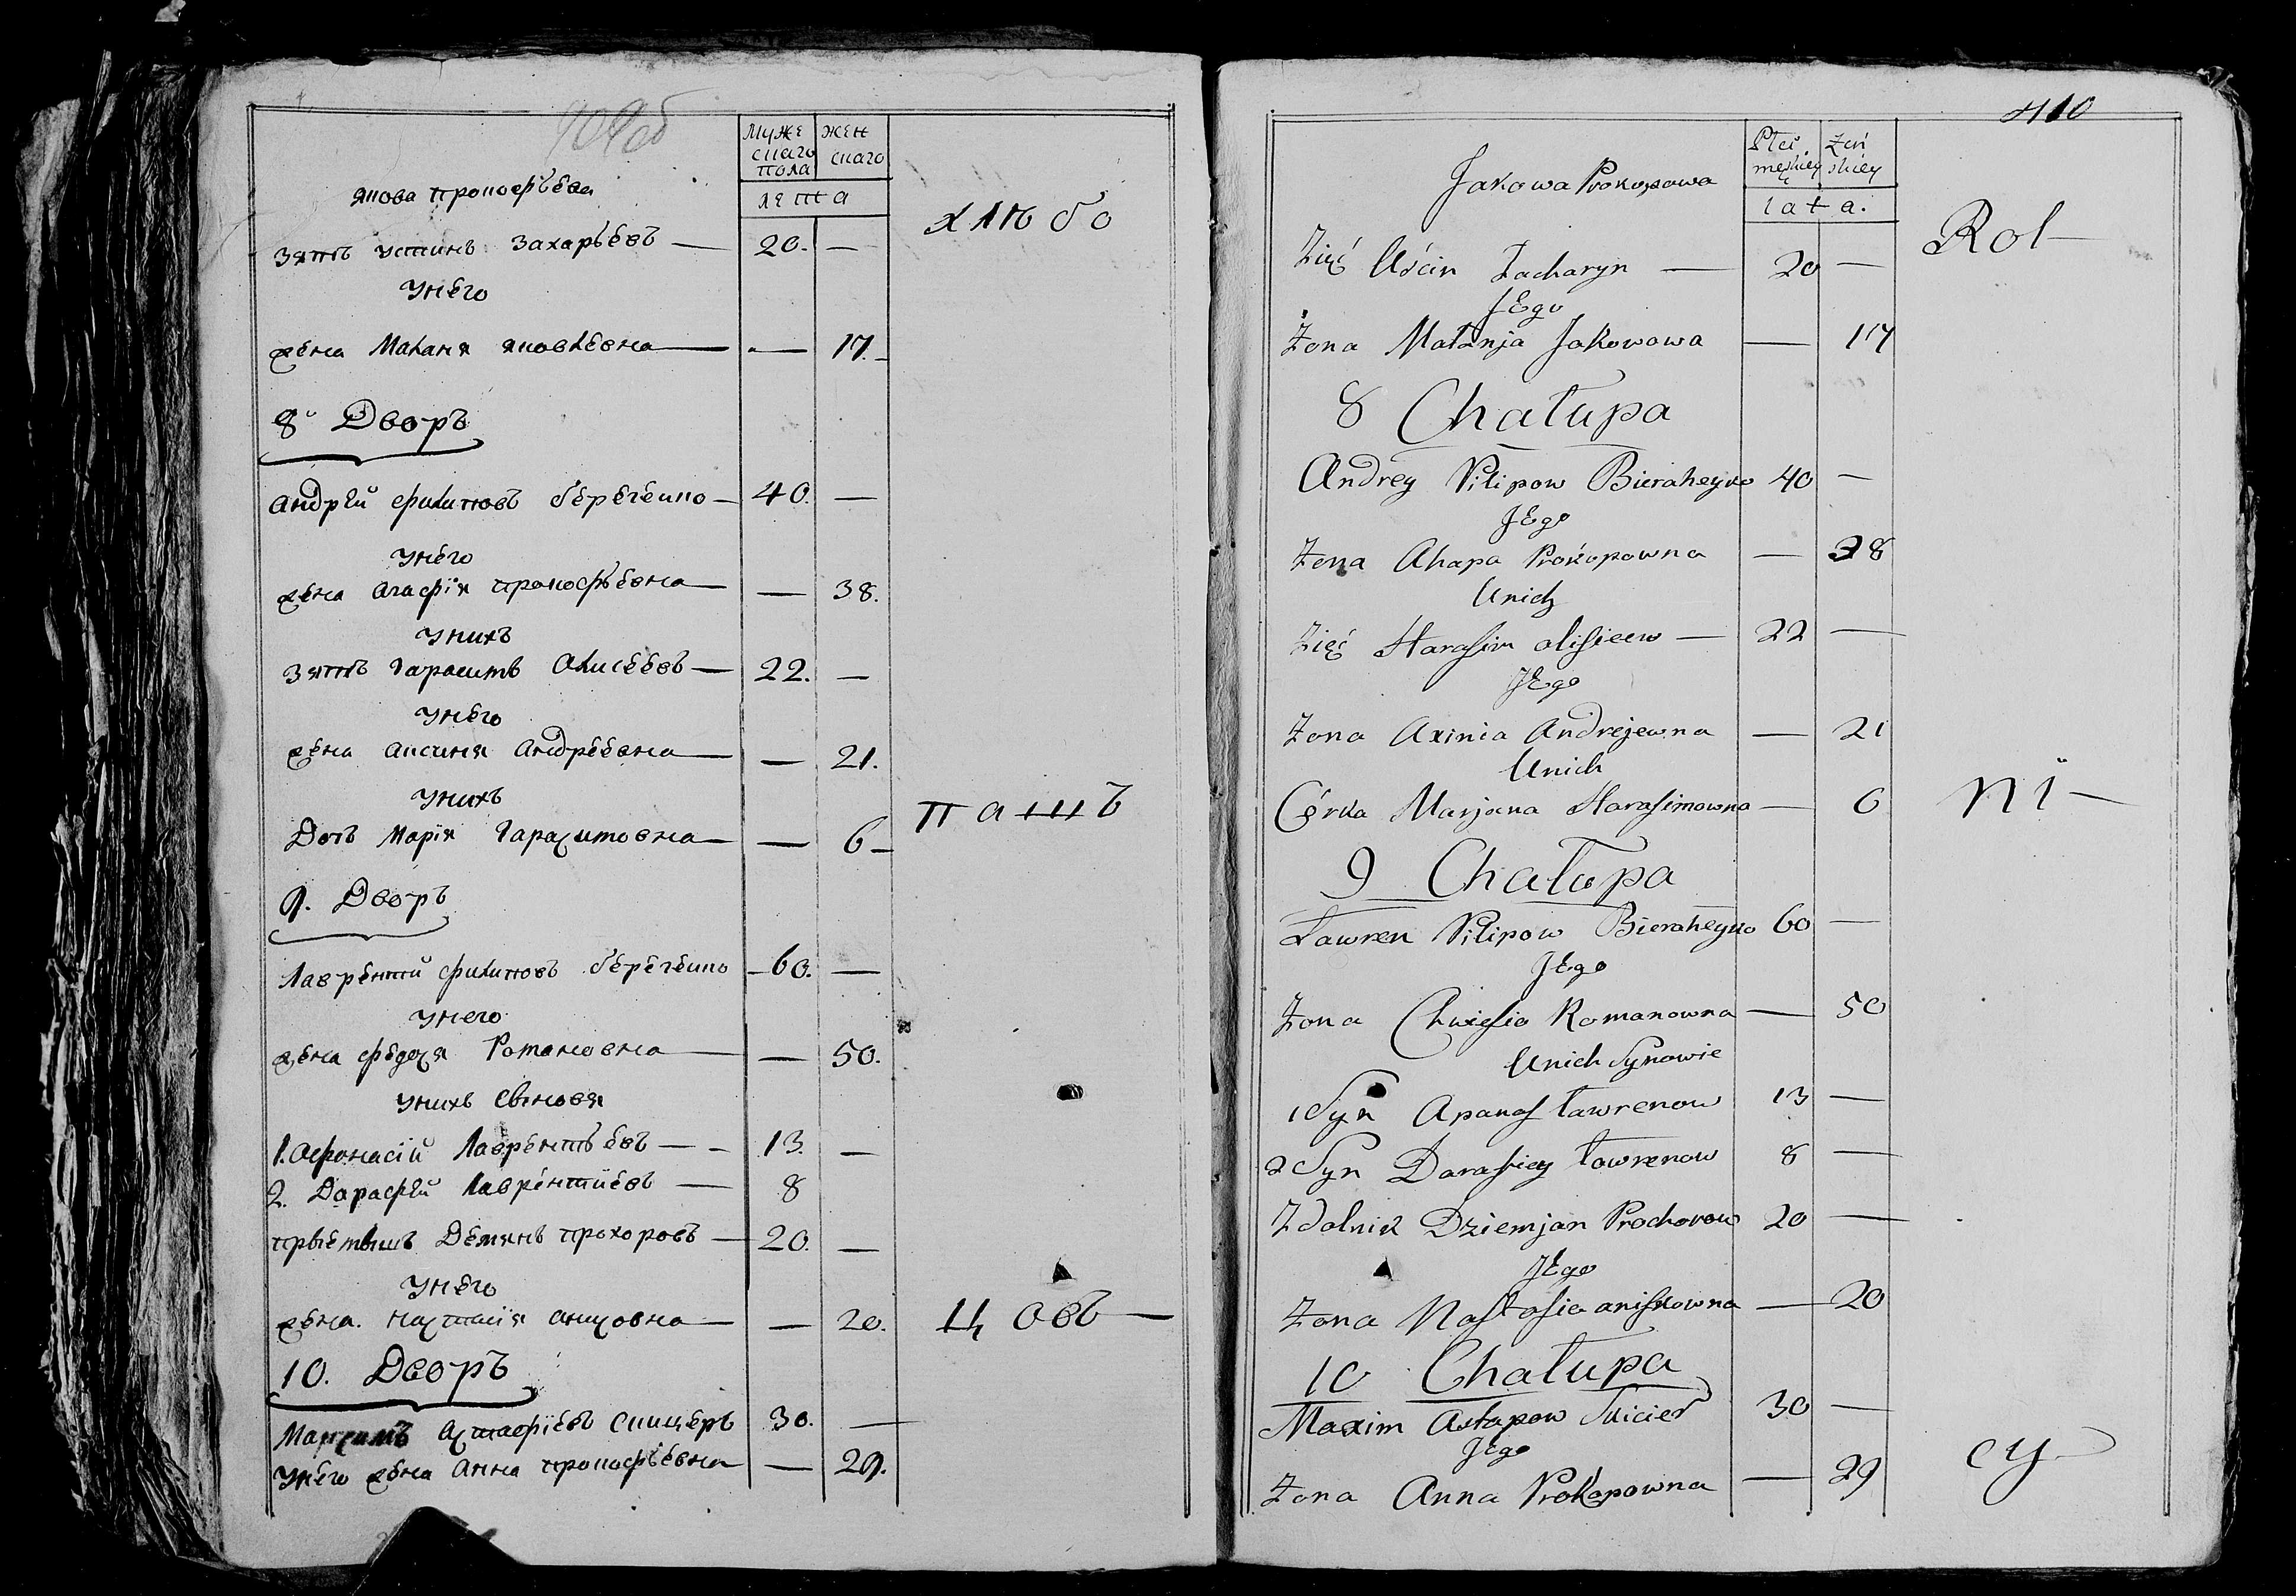 409об
муже
скаго
пола
жен
скаго
лета
якова прокофьева
зять устинъ захарьевъ — 20. —
унего
жена Маланя яковлевна — — 17. —
хлѣбо
8й Дворъ
андрѣй филиповъ берегеико — 40. —
унего
жена агафія прокофьевна — — 38.
унихъ
зять гарасимъ Алисеевъ — 22. —
унего
жена аксиня андреевна — — 21.
унихъ
Дочь марія гарасимовна — — 6 —
пашъ
9. Дворъ
лаврентий филиповъ берегеико — 60. —
унего
жена федося романовна — — 50.
унихъ сыновя
1. афонасій лаврентьевъ — — 13. —
2. Дарафѣй лаврентиевъ — 8
приемышъ Демянъ прохоровъ — 20. —
унего
жена. настасія анисовна — — 20.
цовъ —
10. Дворъ
Максимъ астафіевъ скицеръ 30. —
унего жена анна прокофьевна — 29.
410
Płci
męskiey
żeń
skiey
lata.
Jakowa Prokopowa
Zięć Uścin Zacharyn — 20 —
JEgo
Żona Małanja Jakowowa — 17
Rol—
8 Chałupa
Andrey Pilipow Bieraheyko 40 —
JEgo
Żona Ahapa Prokopowna — 38
Unich
Zięć Harasim olisieew — 22 —
JEgo
Żona Axinia Andrejewna — 21
Unich
Córka Marjana Harasimowna — 6
ni—
9 Chałupa
Ławren Pilipow Bieraheyko 60 —
JEgo
Żona Chwiesia Romanowna — 50
Unich Synowie
1 Syn Apanas Ławrenow 13 —
2 Syn Darafiey Ławrenow 8 —
Zdolnik Dziemjan Prochorow 20 —
JEgo
Żona Nastasia aniskowna — 20
10 Chałupa
Maxim Astapow Skicier 30 —
JEgo
Żona Anna Prokopowna — 29
cy